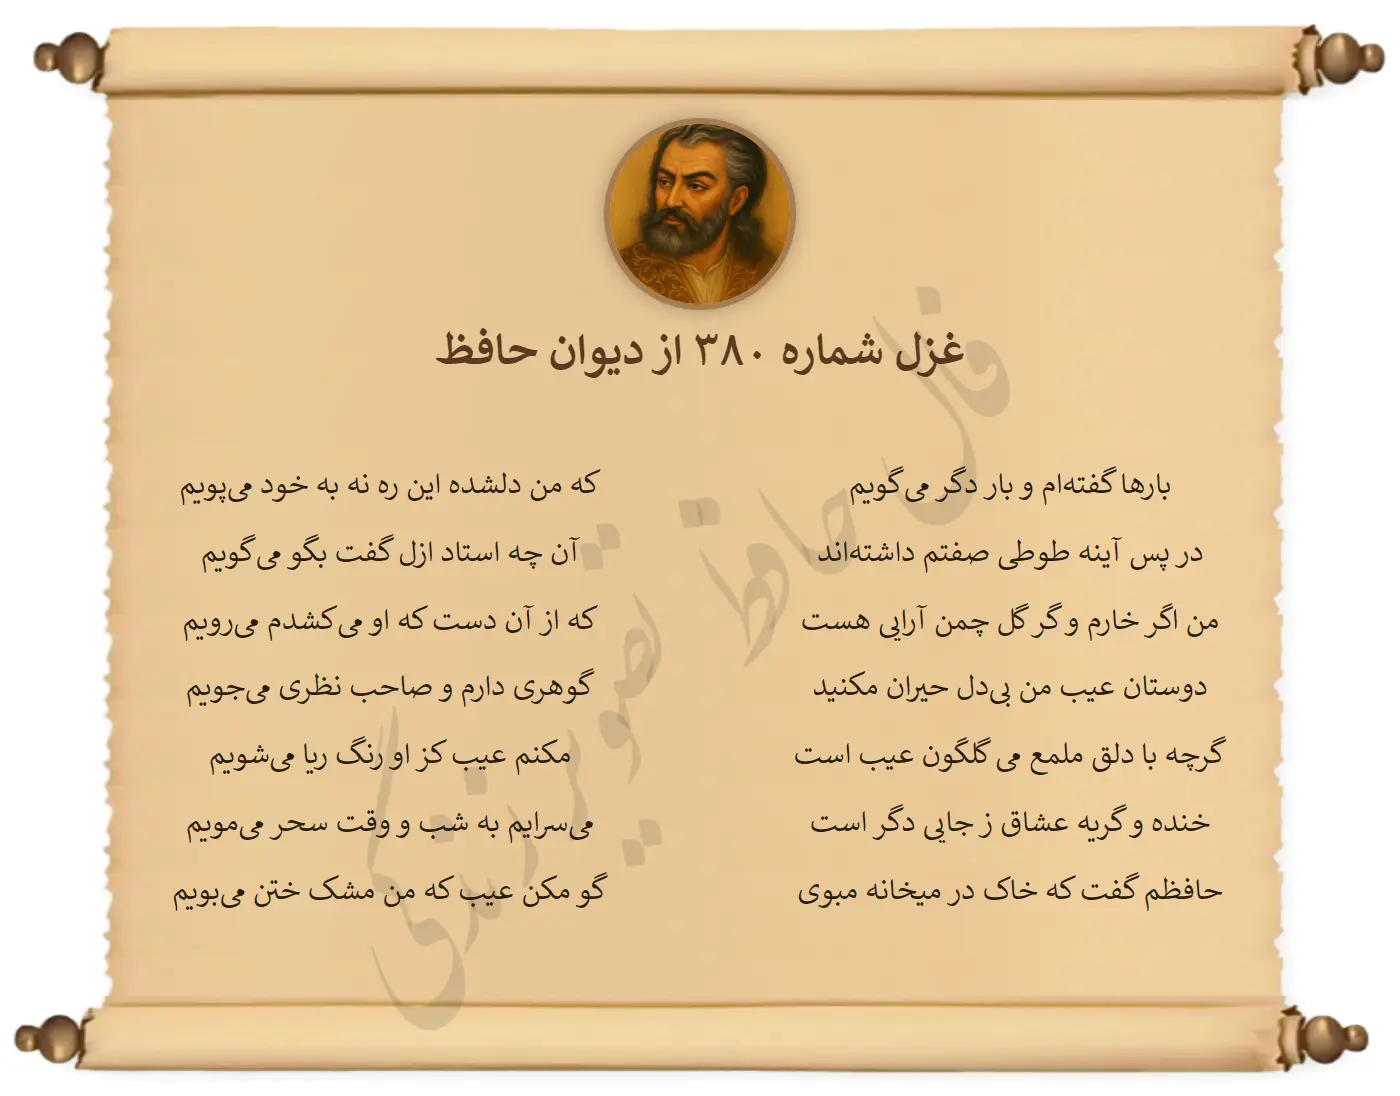 غزل شماره ۳۸۰ از دیوان حافظ
بارها گفته‌ام و بار دگر می‌گویم
که من دلشده این ره نه به خود می‌پویم
در پس آینه طوطی صفتم داشته‌اند
آن چه استاد ازل گفت بگو می‌گویم
من اگر خارم و گر گل چمن آرایی هست
که از آن دست که او می‌کشدم می‌رویم
دوستان عیب من بی‌دل حیران مکنید
گوهری دارم و صاحب نظری می‌جویم
گرچه با دلق ملمع می گلگون عیب است
مکنم عیب کز او رنگ ریا می‌شویم
خنده و گریه عشاق ز جایی دگر است
می‌سرایم به شب و وقت سحر می‌مویم
حافظم گفت که خاک در میخانه مبوی
گو مکن عیب که من مشک ختن می‌بویم
فال حافظ تصویر زندگی